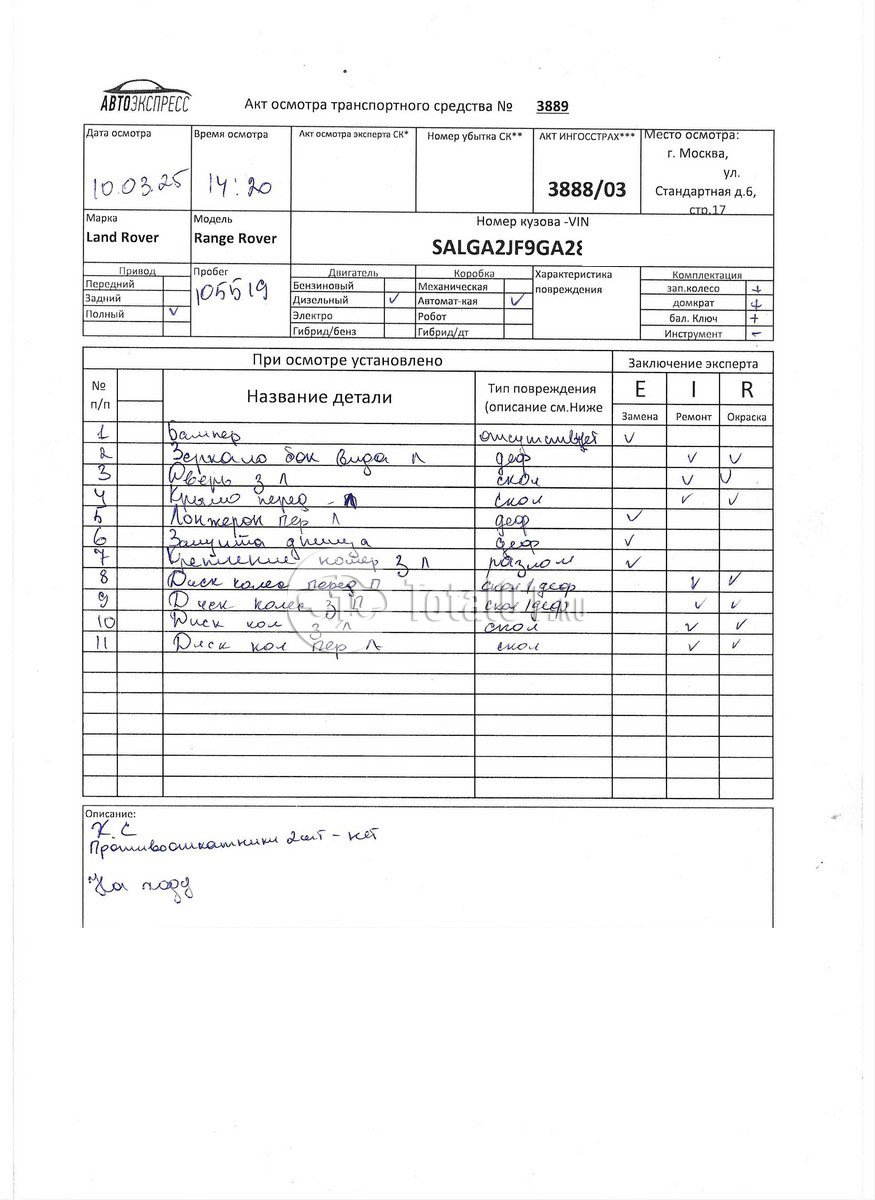 АВТОЭКСПРЕСС
Акт осмотра транспортного средства № 3889
Дата осмотра
10.03.25
Время осмотра
14:20
Акт осмотра эксперта СК*
Номер убытка СК**
АКТ ИНГОССТРАХ***
3888/03
Место осмотра:
г. Москва,
ул.
Стандартная д.6,
стр.17
Марка
Land Rover
Модель
Range Rover
Номер кузова -VIN
SALGA2JF9GA28
Привод
Передний
Задний
Полный V
Пробег
105519
Двигатель
Бензиновый
Дизельный V
Электро
Гибрид/бенз
Коробка
Механическая
Автомат-кая V
Робот
Гибрид/дт
Характеристика
повреждения
Комплектация
зап.колесо +
домкрат +
бал. Ключ +
Инструмент -
При осмотре установлено
Заключение эксперта
№
п/п
Название детали
Тип повреждения
(описание см.Ниже
E I R
Замена Ремонт Окраска
1 Бампер отсутствует V
2 Зеркало бок вида Л деф V V
3 Дверь З Л скол V V
4 Крыло перед - Л скол V V
5 Лонжерон пер Л деф V
6 Защита днища деф V
7 Крепление номер З Л разлом V
8 Диск колес перед П скол/деф V V
9 Диск колес З П скол/деф V V
10 Диск кол З Л скол V V
11 Диск кол пер Л скол V V
Total01.RU
Описание:
К.С
Противооткатники 2шт - нет
На ходу